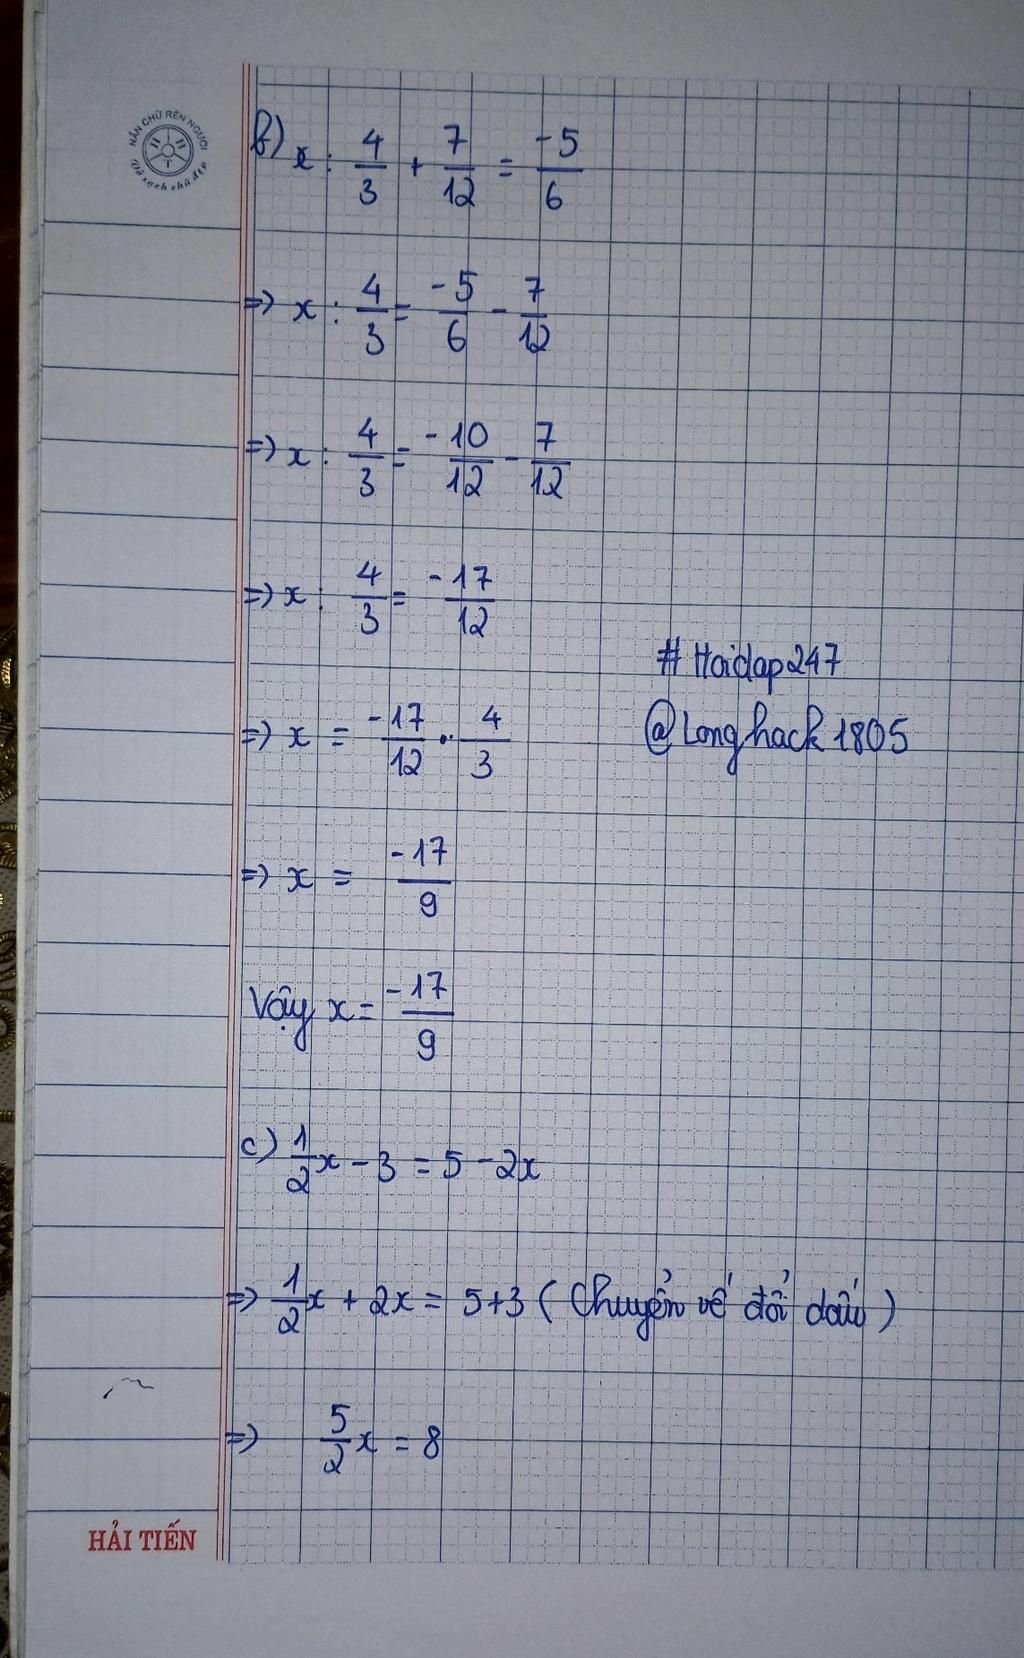 NẮN CHỮ RÈN NGƯỜI
Vở sạch chữ đẹp
b) x : 4/3 + 7/12 = -5/6
=> x : 4/3 = -5/6 - 7/12
=> x : 4/3 = -10/12 - 7/12
=> x : 4/3 = -17/12
#Hoidap247
=> x = -17/12 . 4/3
@Longhack1805
=> x = -17/9
Vậy x = -17/9
c) 1/2x - 3 = 5 - 2x
=> 1/2x + 2x = 5+3 (Chuyển vế đổi dấu)
=> 5/2x = 8
HẢI TIẾN